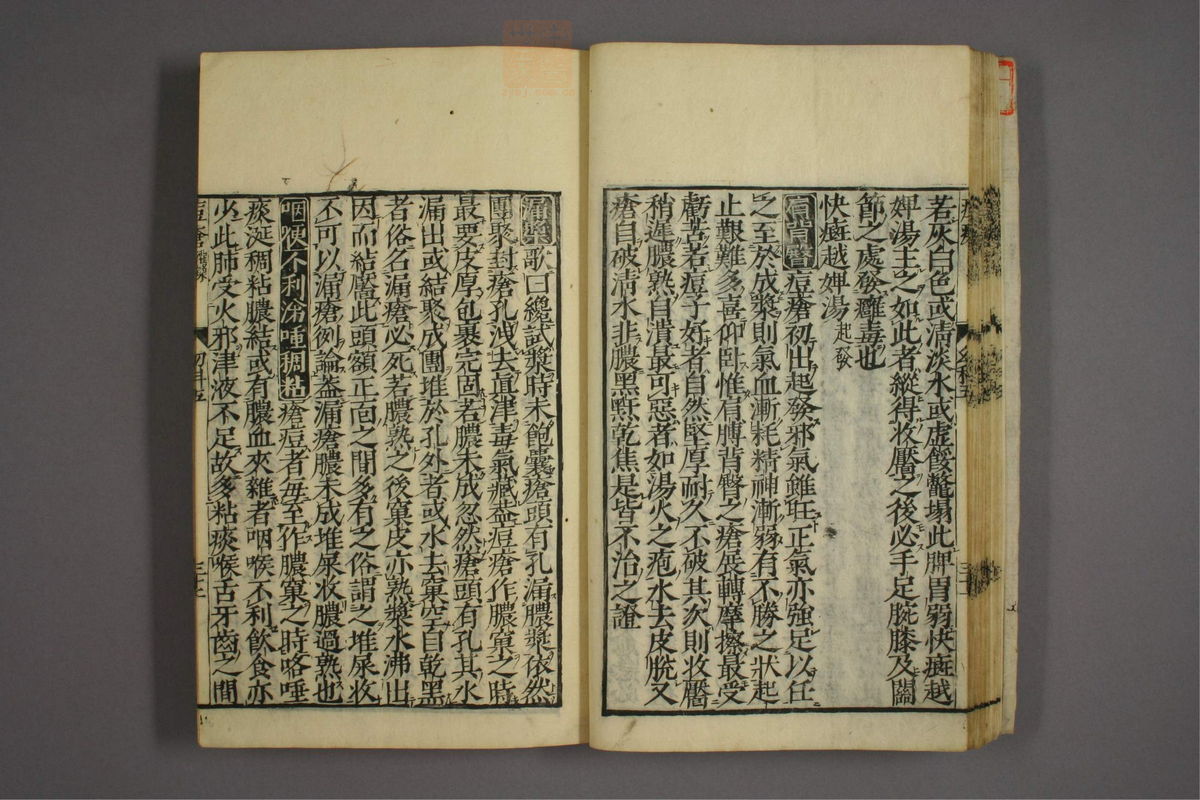 若灰白色或清淡水或虛餒鼈塌此脾胃弱快癍越
婢湯主之如此者縱得收靨之後必手足腕膝及關
節之處發癰毒也
快癍越婢湯 起發
肩背臀 痘瘡初出起發邪氣雖旺正氣亦強足以任
之至於成漿則氣血漸耗精神漸弱有不勝之狀起
止艱難多喜仰臥惟有膊背臀之瘡展轉摩擦最受
虧苦若痘子好者自然堅厚耐久不破其次則收靨
稍遲膿熟自潰最可惡者如湯火之疱水去皮脫又
瘡自破清水非膿黑黶乾焦是皆不治之證
漏漿 歌曰纔試漿時未飽囊瘡頭有孔漏膿漿依然
團聚封瘡孔洩去眞津毒氣藏蓋痘瘡作膿窠之時
最要皮厚包裹完固若膿未成忽然瘡頭有孔其水
漏出或結聚成團堆於孔外者或水去窠空自乾黑
者俗名漏瘡必死若膿熟之後窠皮亦熟漿水沸出
因而結靨此頭額正面之間多有之俗謂之堆屎收
不可以漏瘡例論蓋漏瘡膿未成堆屎收膿過熟也
咽喉不利涕唾稠粘 瘡痘者每至作膿窠之時咯唾
痰涎稠粘膿結或有膿血夾雜者咽喉不利飲食亦
少此肺受火邪津液不足故多粘痰喉舌牙齒之間